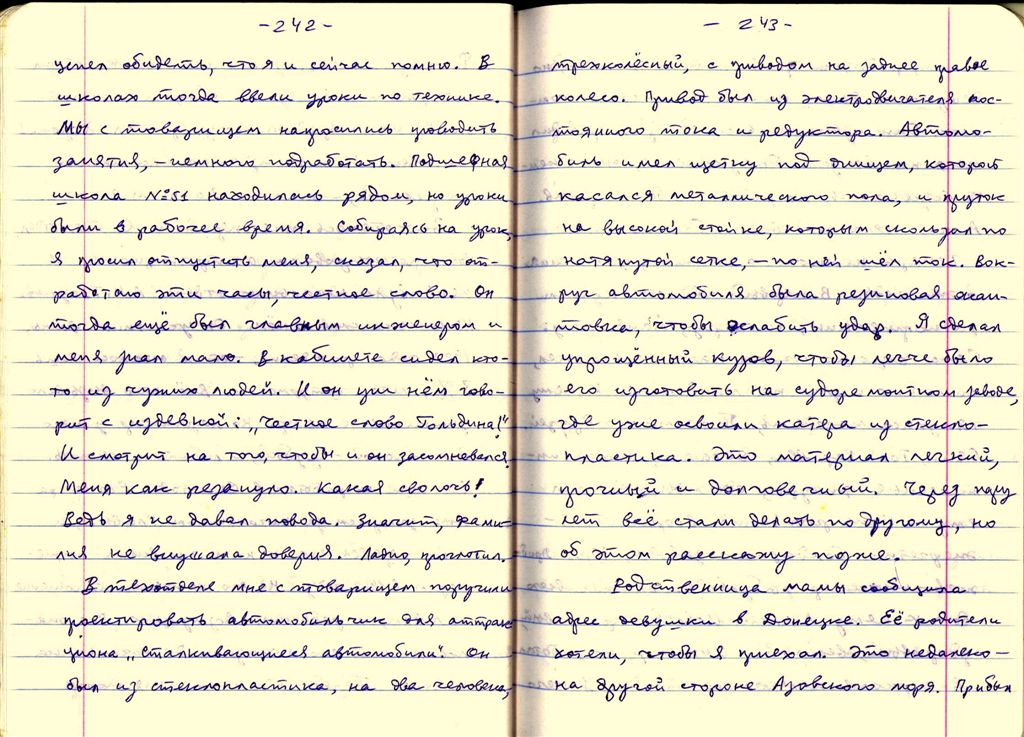 -242-
успел обидеть, что я и сейчас помню. В
школах тогда ввели уроки по технике.
Мы с товарищем напросились проводить
занятия, – немного подработать. Подшефная
школа №51 находилась рядом, но уроки
были в рабочее время. Собираясь на урок,
я просил отпустить меня, сказал, что от-
работаю эти часы, честное слово. Он
тогда ещё был главным инженером и
меня знал мало. В кабинете сидел кто-
то из чужих людей. И он при нём гово-
рит с издевкой: „Честное слово Гольдина!“
И смотрит на того, чтобы и он засомневался.
Меня как резануло. Какая сволочь!
Ведь я не давал повода. Значит, фами-
лия не внушала доверия. Ладно, проглотил.
В техотделе мне с товарищем поручили
проектировать автомобильчик для аттрак-
циона „Сталкивающиеся автомобили“. Он
был из стеклопластика, на два человека,
- 243-
трехколёсный, с приводом на заднее правое
колесо. Привод был из электродвигателя пос-
тоянного тока и редуктора. Автомо-
биль имел щетку под днищем, которой
касался металлического пола, и пруток
на высокой стойке, которым скользил по
натянутой сетке, – по ней шёл ток. Вок-
руг автомобиля была резиновая окан-
товка, чтобы ослабить удар. Я сделал
упрощённый кузов, чтобы легче было
его изготовить на судоремонтном заводе,
где уже освоили катера из стекло-
пластика. Это материал легкий,
прочный и долговечный. Через пару
лет всё стали делать по другому, но
об этом расскажу позже.
Родственница мамы сообщила
адрес девушки в Донецке. Её родители
хотели, чтобы я приехал. Это недалеко –
на другой стороне Азовского моря. Прибыл